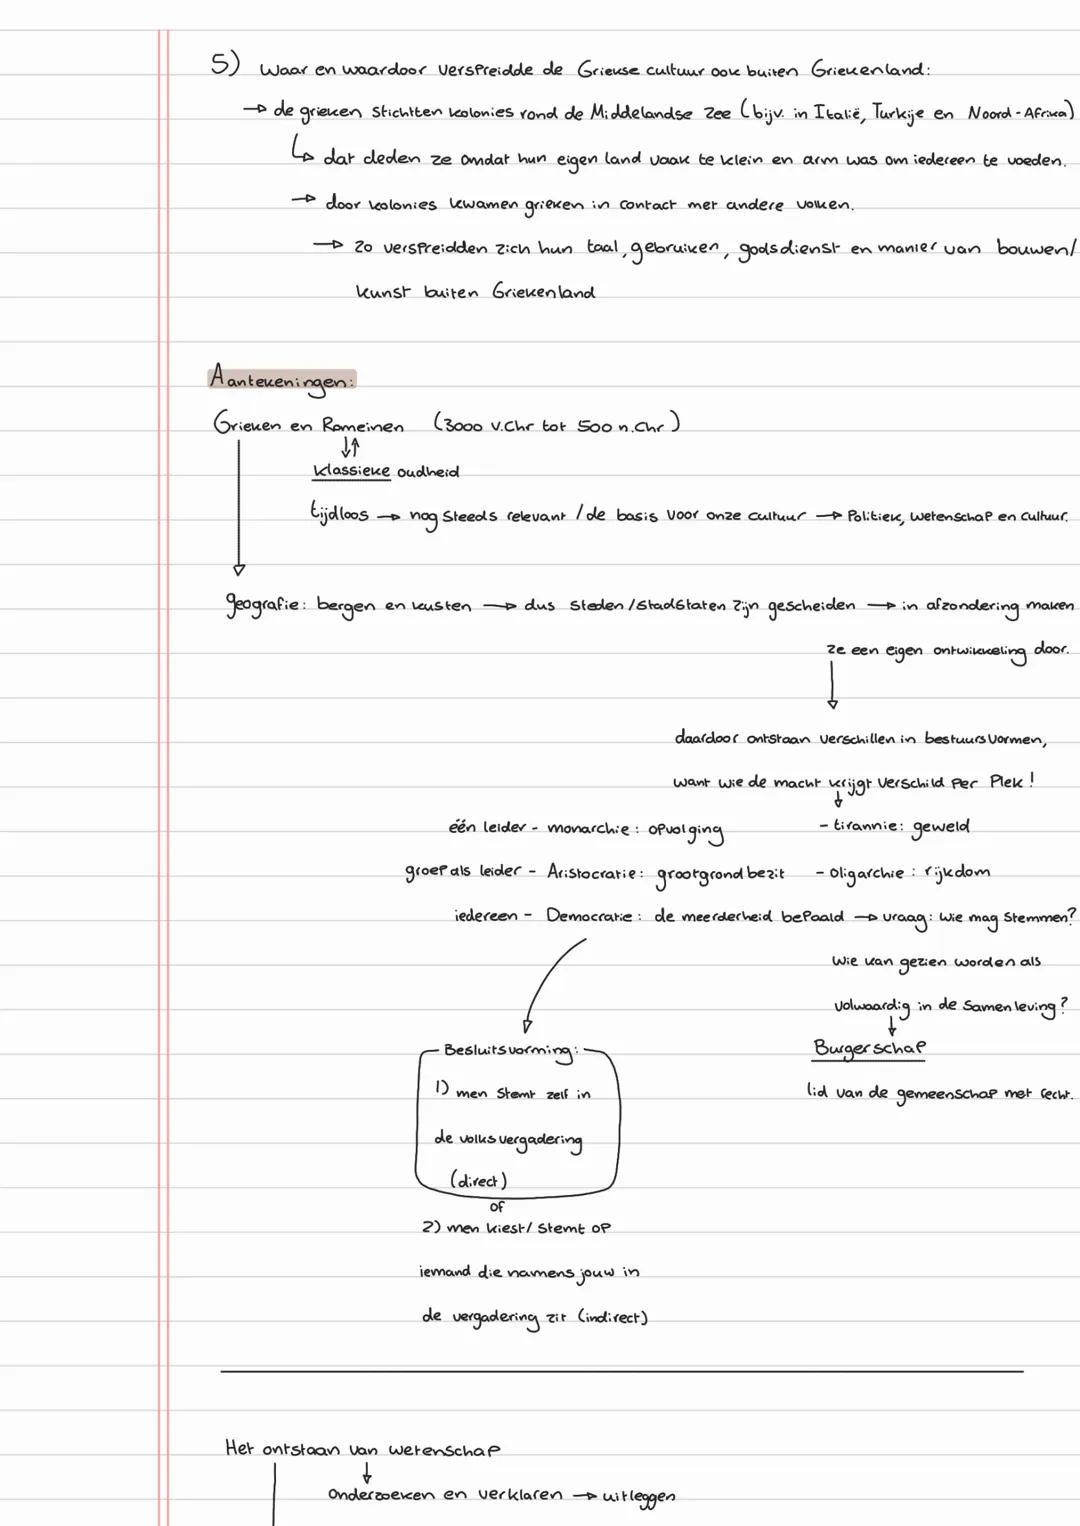 5) Waar en waardoor verspreidde de Griekse cultuur ook buiten Griekenland:
→ de grieken stichtten kolonies rond de Middelandse zee (bijv. in Italië, Turkije en Noord-Afrika)
↳ dat deden ze omdat hun eigen land vaak te klein en arm was om iedereen te voeden.
→ door kolonies kwamen grieken in contact met andere volken.
→ zo verspreidden zich hun taal, gebruiken, godsdienst en manier van bouwen/
kunst buiten Griekenland
Aantekeningen:
Grieken en Romeinen (3000 v.Chr tot 500 n.Chr)
↓↑
klassieke oudheid
tijdloos → nog steeds relevant / de basis voor onze cultuur → Politiek, wetenschap en cultuur.
geografie: bergen en kusten → dus steden/stadstaten zijn gescheiden → in afzondering maken
ze een eigen ontwikkeling door.
↓
daardoor ontstaan verschillen in bestuursvormen,
want wie de macht krijgt verschild per plek!
↓
één leider - monarchie: opvolging - tirannie: geweld
groep als leider - Aristocratie: grootgrondbezit - oligarchie: rijkdom
iedereen - Democratie: de meerderheid bepaald → vraag: wie mag stemmen?
wie kan gezien worden als
volwaardig in de samenleving?
↓
Besluitsvorming: Burgerschap
1) men stemt zelf in lid van de gemeenschap met recht.
de volksvergadering
(direct)
of
2) men kiest/stemt op
iemand die namens jouw in
de vergadering zit (indirect)
Het ontstaan van wetenschap
↓
Onderzoeken en verklaren → uitleggen